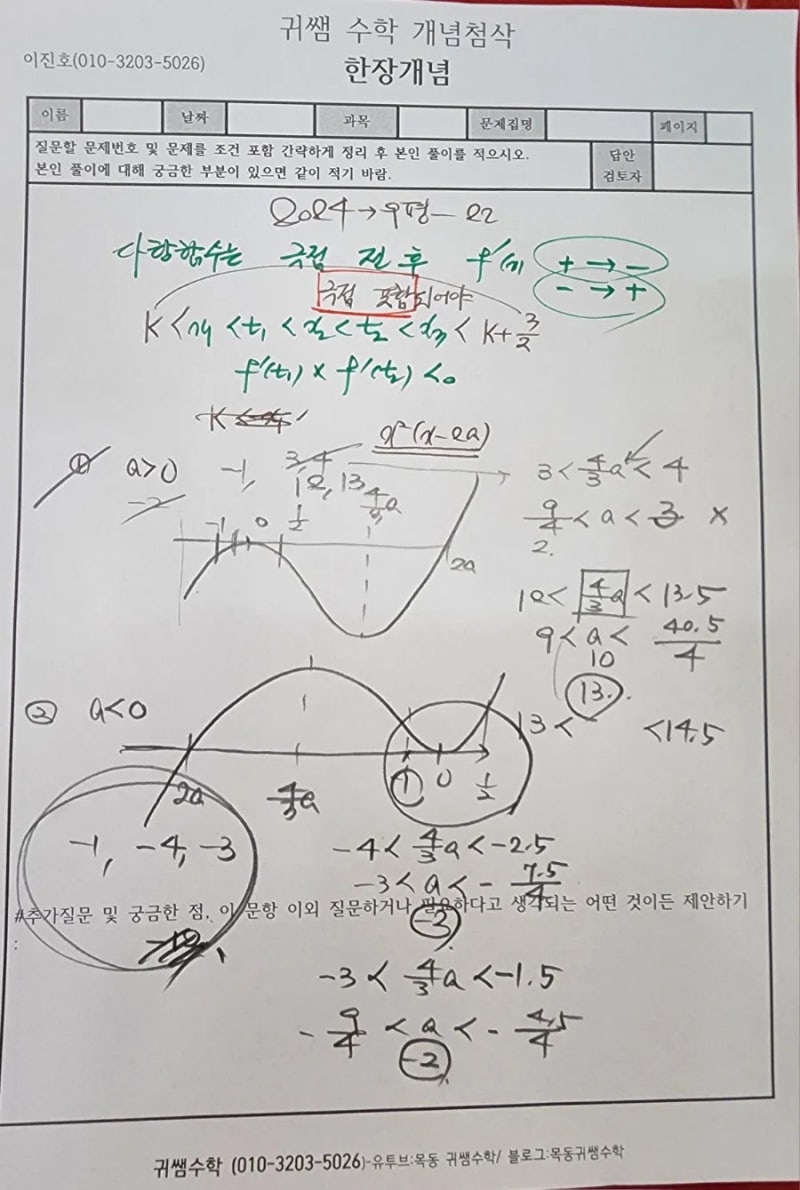 귀쌤 수학 개념첨삭
이진호(010-3203-5026)
한장개념
이름 날짜 과목 문제집명 페이지
질문할 문제번호 및 문제를 조건 포함 간략하게 정리 후 본인 풀이를 적으시오.
본인 풀이에 대해 궁금한 부분이 있으면 같이 적기 바람.
답안
검토자
2024 → 9평 - 22
다항함수는 극점 전후 f'이 + → -
- → +
극점 포함되어야
K < x1 < t1 < x2 < t2 < x3 < K+3/2
f'(t1) × f'(t2) < 0
x²(x-2a)
① a>0 -1, 3,4
12, 13
-2
-1 0 1/2 4/3a 2a
3 < 4/3a < 4
9/4 < a < 3 ×
2.
12 < 4/3a < 13.5
9 < a < 40.5/4
10
13.
13 < < 14.5
② a<0
2a 4/3a -1 0 1/2
-1, -4, -3
-4 < 4/3a < -2.5
-3 < a < - 7.5/4
#추가질문 및 궁금한 점, 이 문항 이외 질문하거나 필요하다고 생각되는 어떤 것이든 제안하기
:
-3
-3 < 4/3a < -1.5
- 9/4 < a < - 4.5/4
-2
귀쌤수학 (010-3203-5026)-유투브:목동 귀쌤수학/ 블로그:목동귀쌤수학